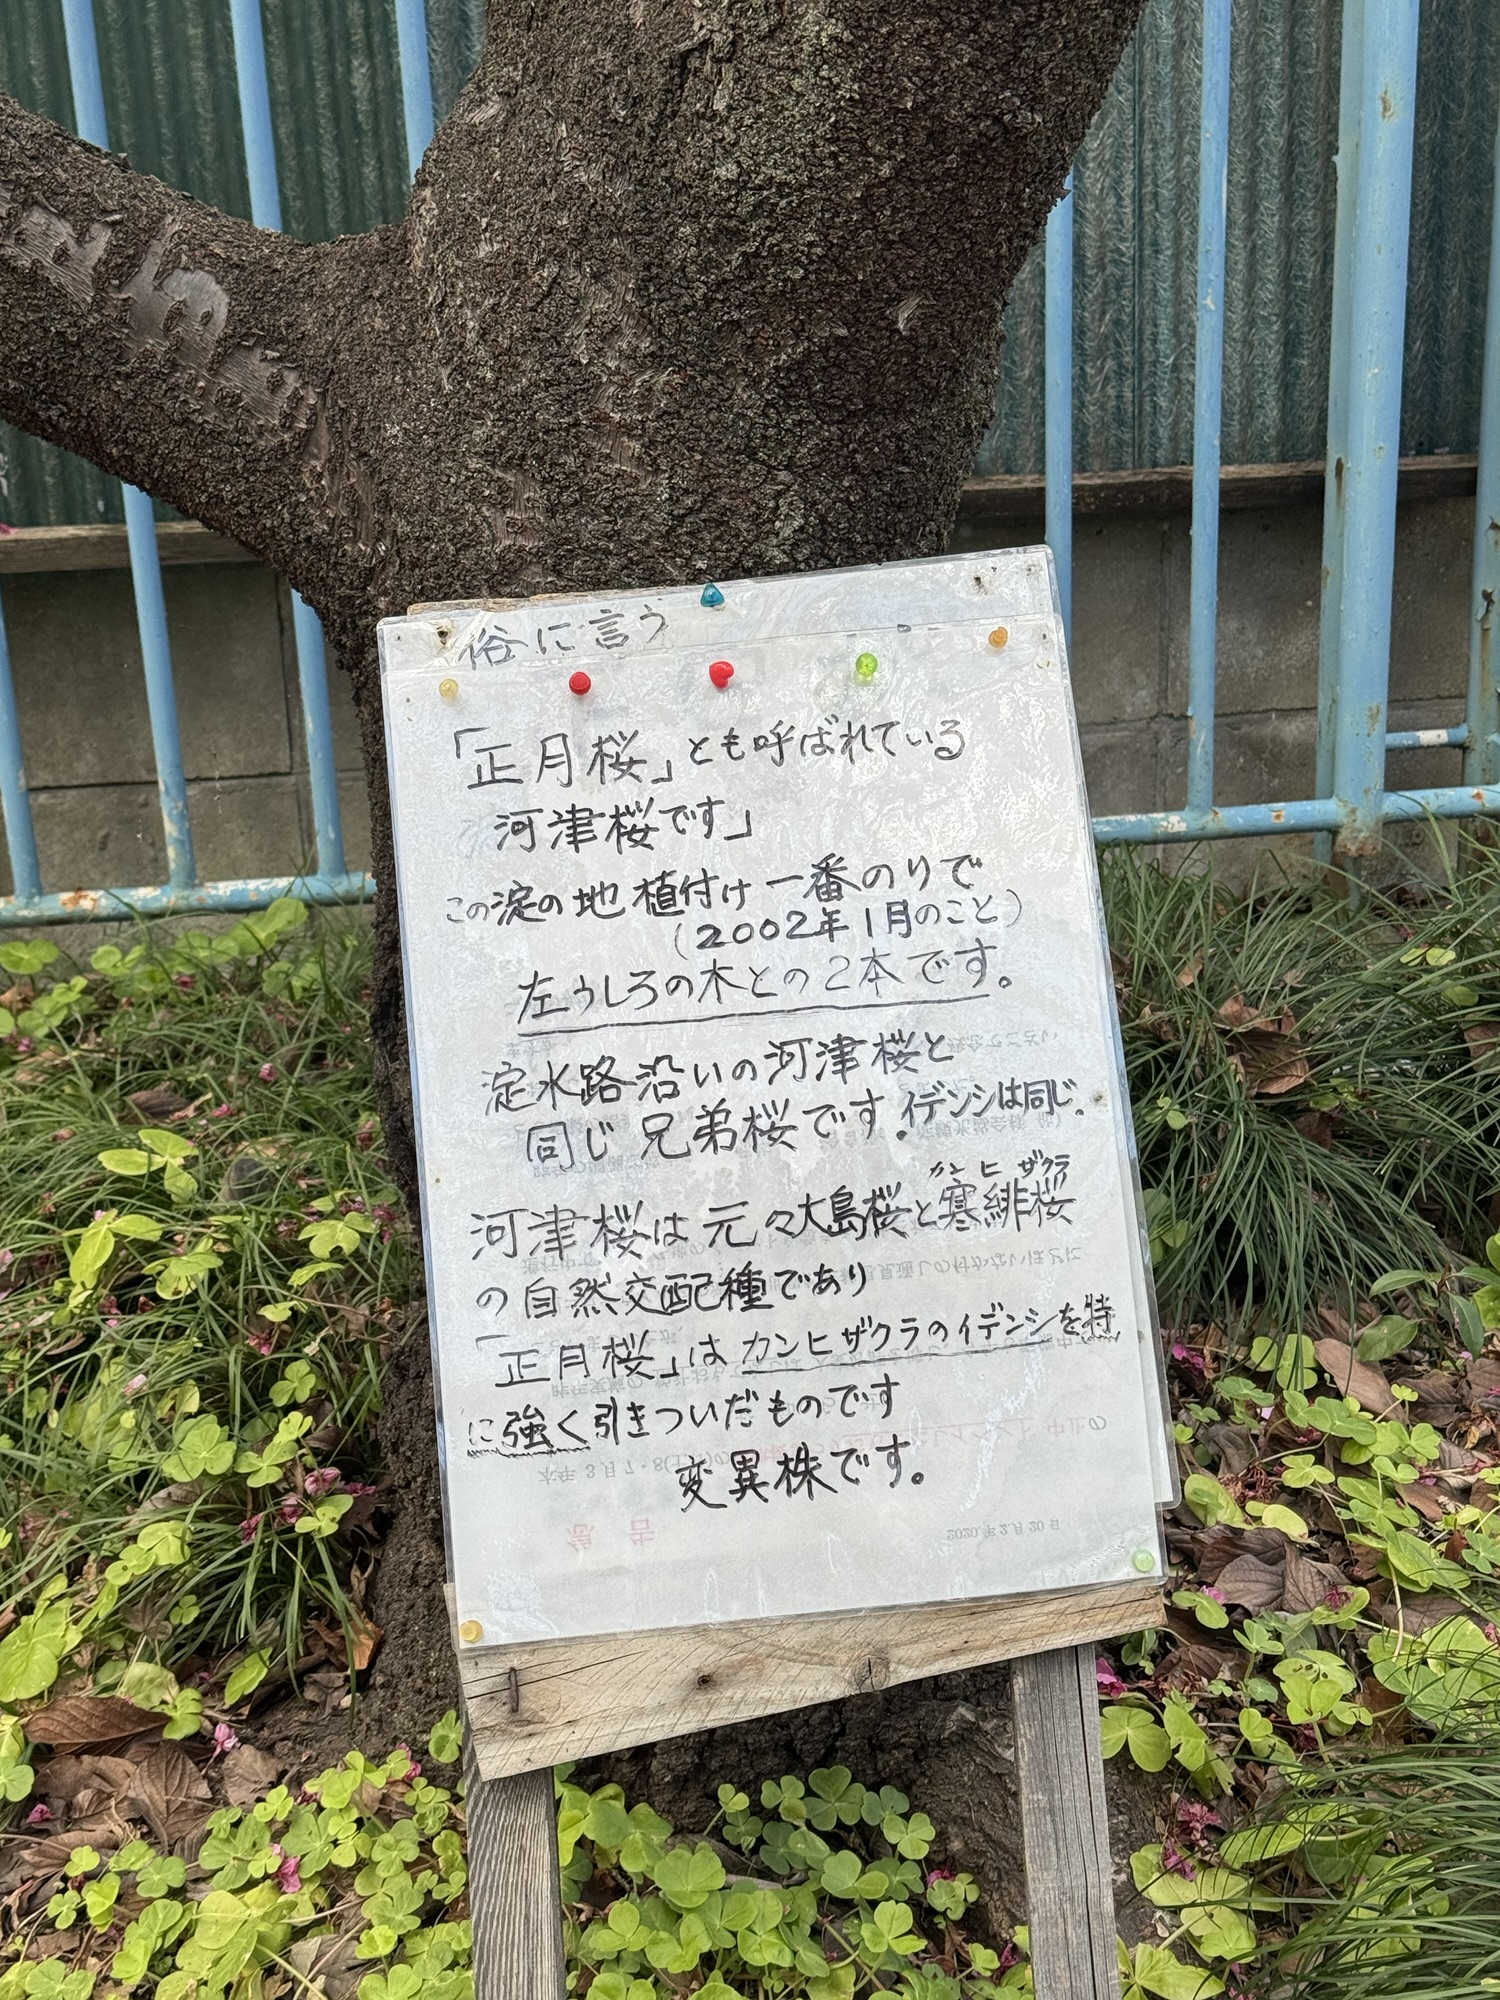 俗に言う
「正月桜」とも呼ばれている
河津桜です」
この淀の地 植付け 一番のりで
(2002年1月のこと)
左うしろの木との2本です。
淀水路沿いの河津桜と
同じ兄弟桜です.イデンシは同じ.
カンヒザクラ
河津桜は元々大島桜と寒緋桜
の自然交配種であり
「正月桜」はカンヒザクラのイデンシを特
に強く引きついだものです
変異株です。
2020年2月20日